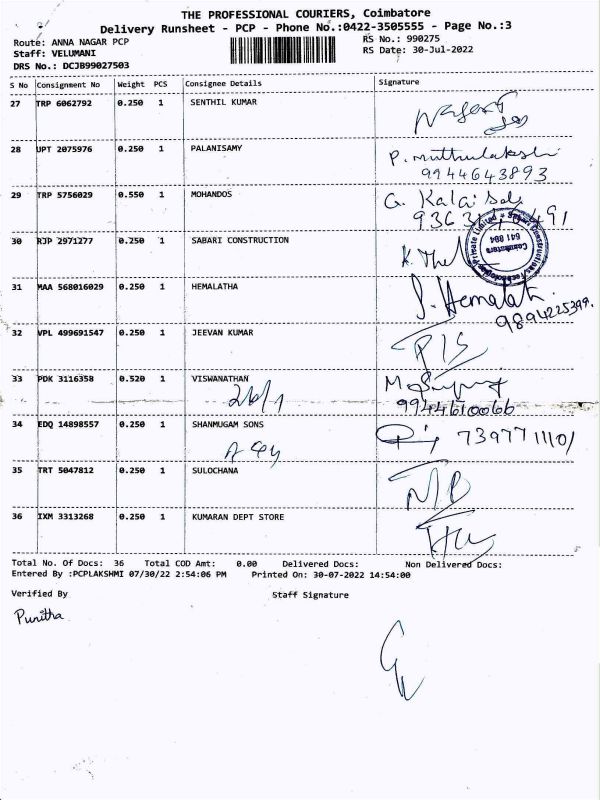 THE PROFESSIONAL COURIERS, Coimbatore
Delivery Runsheet - PCP - Phone No.:0422-3505555 - Page No.:3
Route: ANNA NAGAR PCP RS No.: 990275
Staff: VELUMANI RS Date: 30-Jul-2022
DRS No.: DCJB99027503
S No Consignment No Weight PCS Consignee Details Signature
27 TRP 6062792 0.250 1 SENTHIL KUMAR
28 UPT 2075976 0.250 1 PALANISAMY P. muthulakshi
9944643893
29 TRP 5756029 0.550 1 MOHANDOS G. Kalai Sel
30 RJP 2971277 0.250 1 SABARI CONSTRUCTION
Coimbatore
641 004
31 MAA 568016029 0.250 1 HEMALATHA S. Hemalath
9894225399.
32 VPL 499691547 0.250 1 JEEVAN KUMAR
33 PDK 3116358 0.520 1 VISWANATHAN
26/1 9944610066
34 EDQ 14898557 0.250 1 SHANMUGAM SONS 7397711101
35 TRT 5047812 0.250 1 SULOCHANA
36 IXM 3313268 0.250 1 KUMARAN DEPT STORE
Total No. Of Docs: 36 Total COD Amt: 0.00 Delivered Docs: Non Delivered Docs:
Entered By :PCPLAKSHMI 07/30/22 2:54:06 PM Printed On: 30-07-2022 14:54:00
Verified By Staff Signature
Punitha